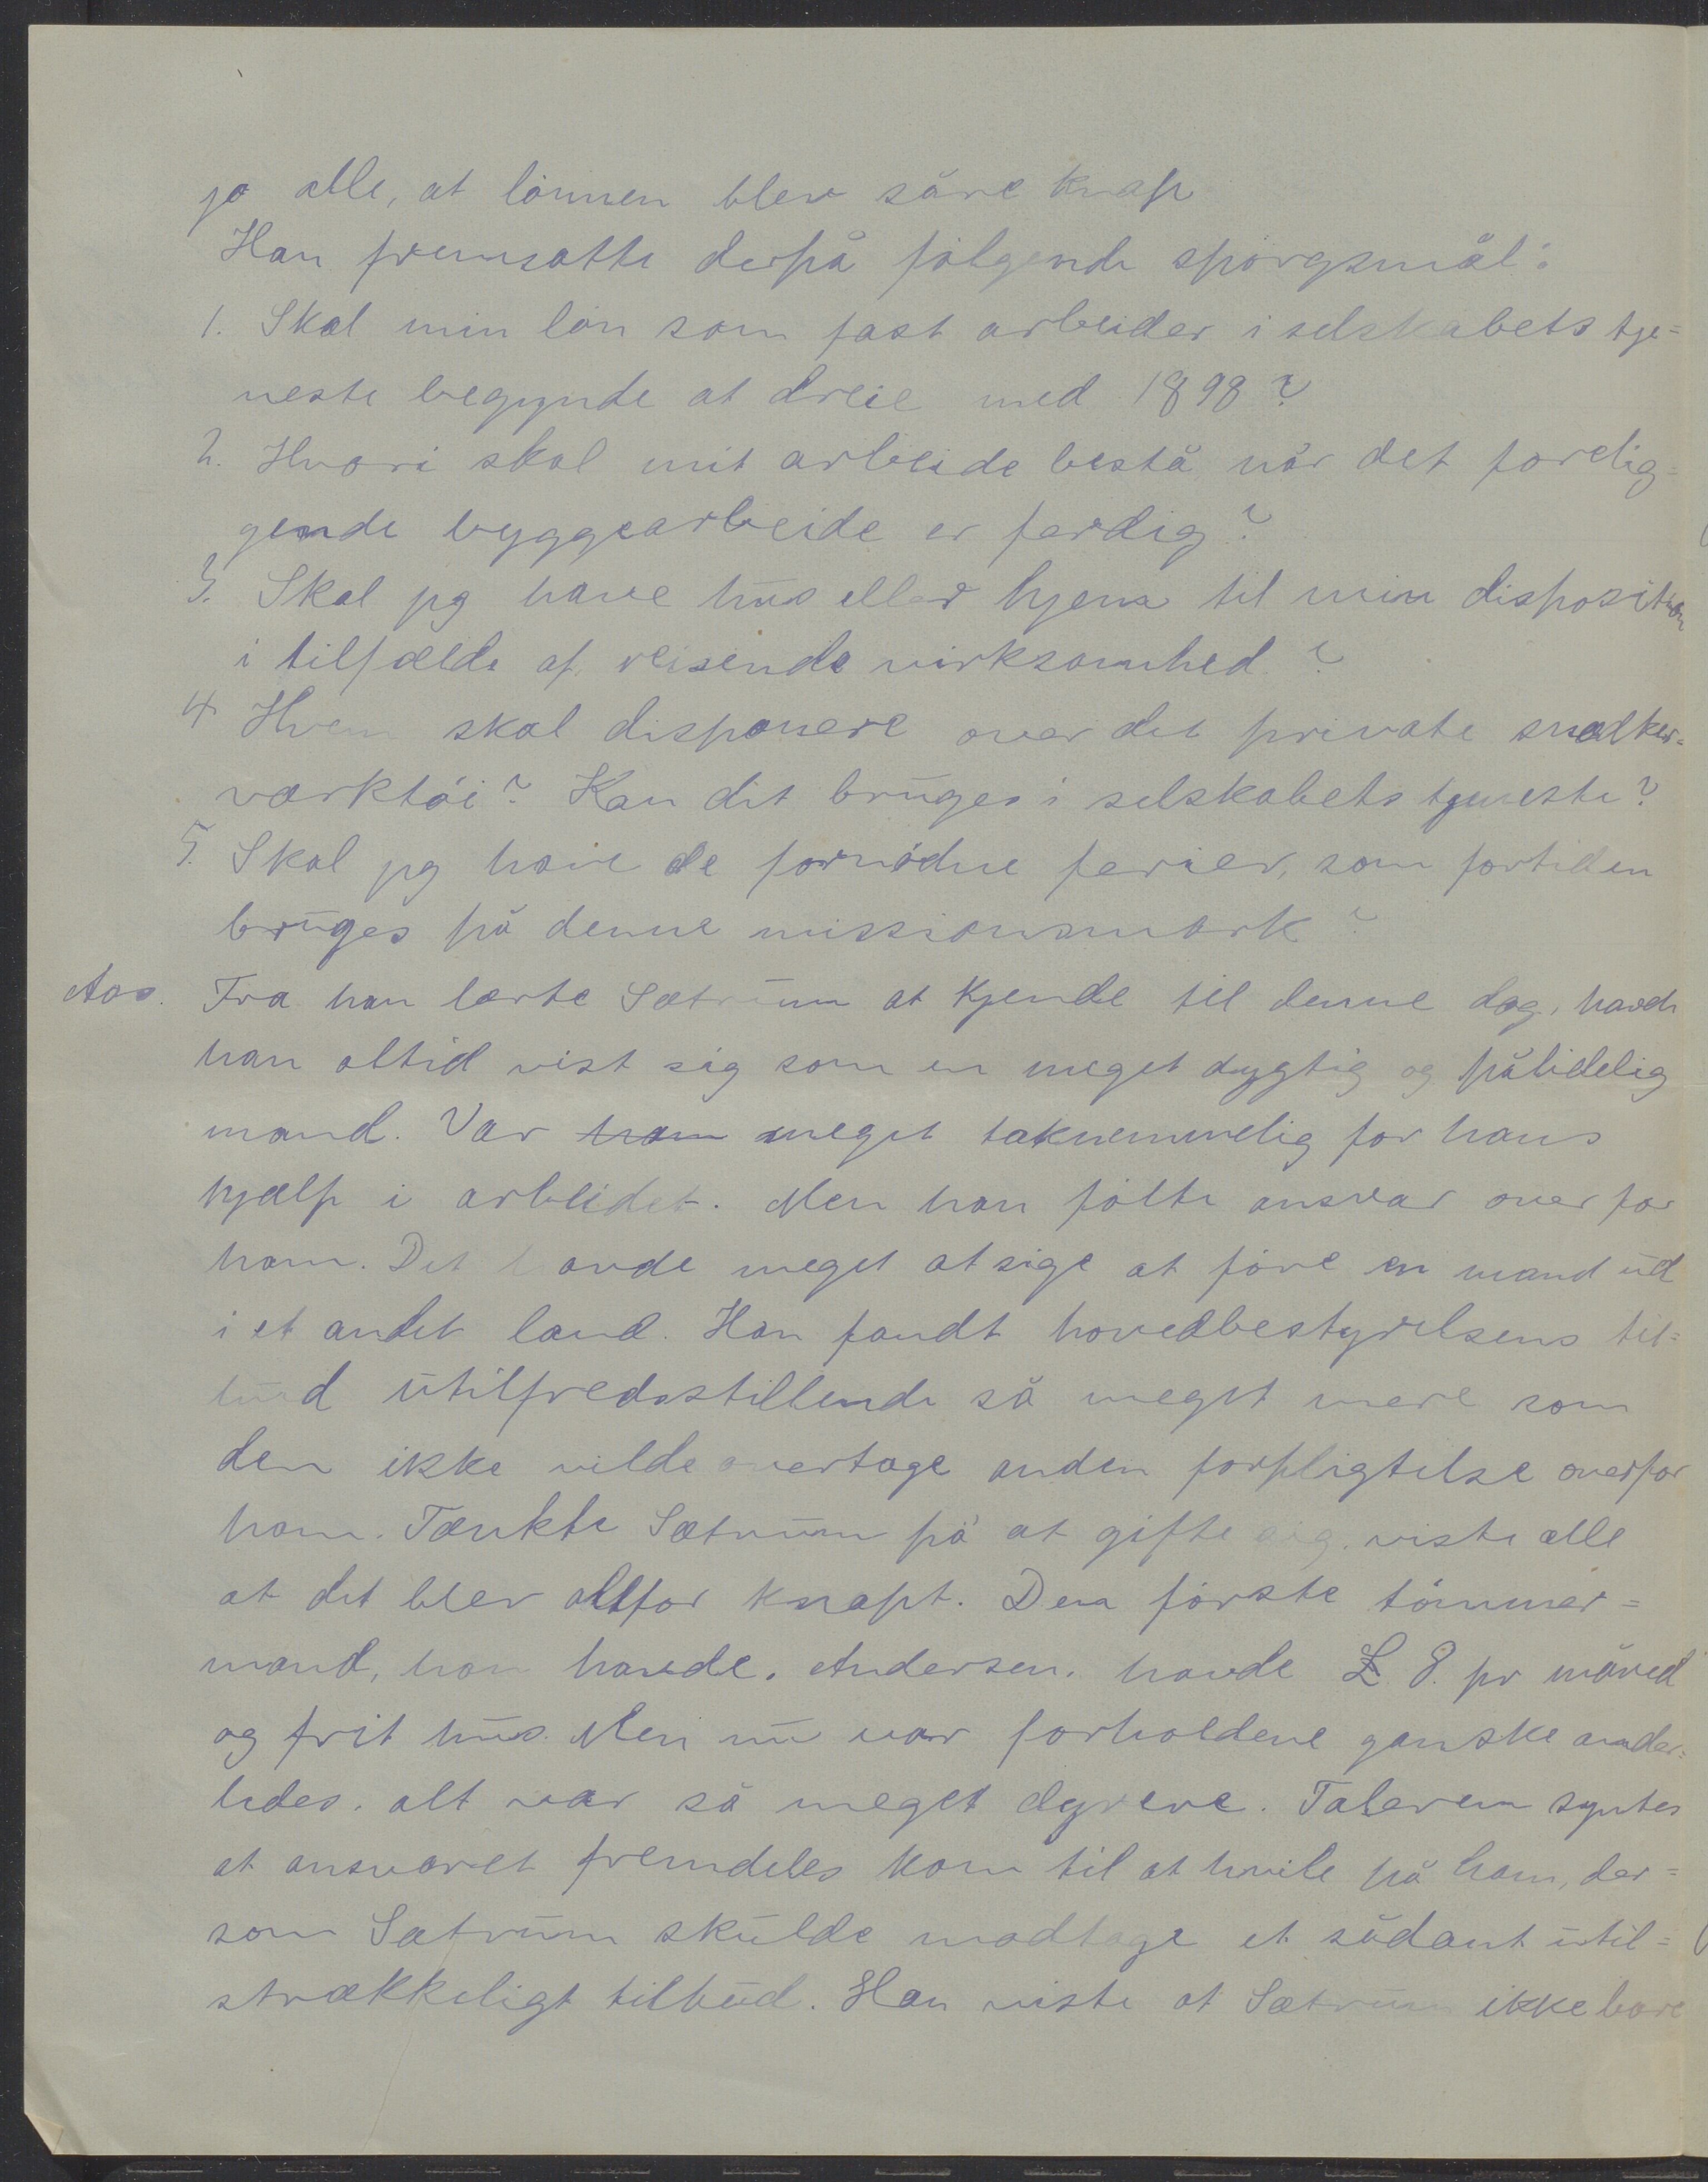 jo alle, at lönnen blev såre knap
Han fremsatte derpå følgende spörgsmål:
1. Skal min lön som fast arbeider i selskabets tje=
neste begynde at dreie med 1898?
2. Hvori skal mit arbeide bestå når det forelig=
gende byggearbeide er færdig?
3. Skal jeg have hus eller hjem til min disposition
i tilfælde af reisende virksomhed?
4 Hvem skal disponere over det private snedker=
værktöi? Kan det bruges i selskabets tjeneste?
5. Skal jeg have de fornödne ferier, som fortiden
bruges på denne missionsmark?
Aas. Fra han lærte Sætrum at kjende til denne dag, havde
han altid vist sig som en meget dygtig og pålidelig
mand. Var ham meget taknemmelig for hans
hjælp i arbeidet. Men han fölte ansvar overfor
ham. Det havde meget at sige at före en mand ud
i et andet land. Han fandt hovedbestyrelsens til=
bud utilfredsstillende så meget mere som
den ikke vilde overtage anden forpligtelse overfor
ham. Tænkte Sætrum på at gifte sig, viste alle
at det blev altfor knapt. Den förste tömmer=
mand, han havde, Andersen, havde £ 8. pr måned
og frit hus. Men nu var forholdene ganske ander=
ledes, alt var så meget dyrere. Taleren syntes
at ansvaret fremdeles kom til at hvile på ham, der=
som Sætrum skulde modtage et sådant util=
strækkeligt tilbud. Han viste at Sætrum ikke bare